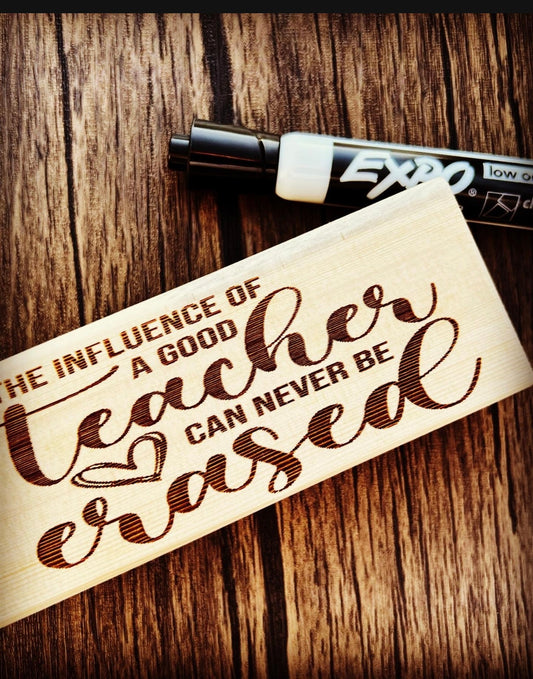 EXPO®
low o
THE INFLUENCE OF
A GOOD
teacher
CAN NEVER BE
erased